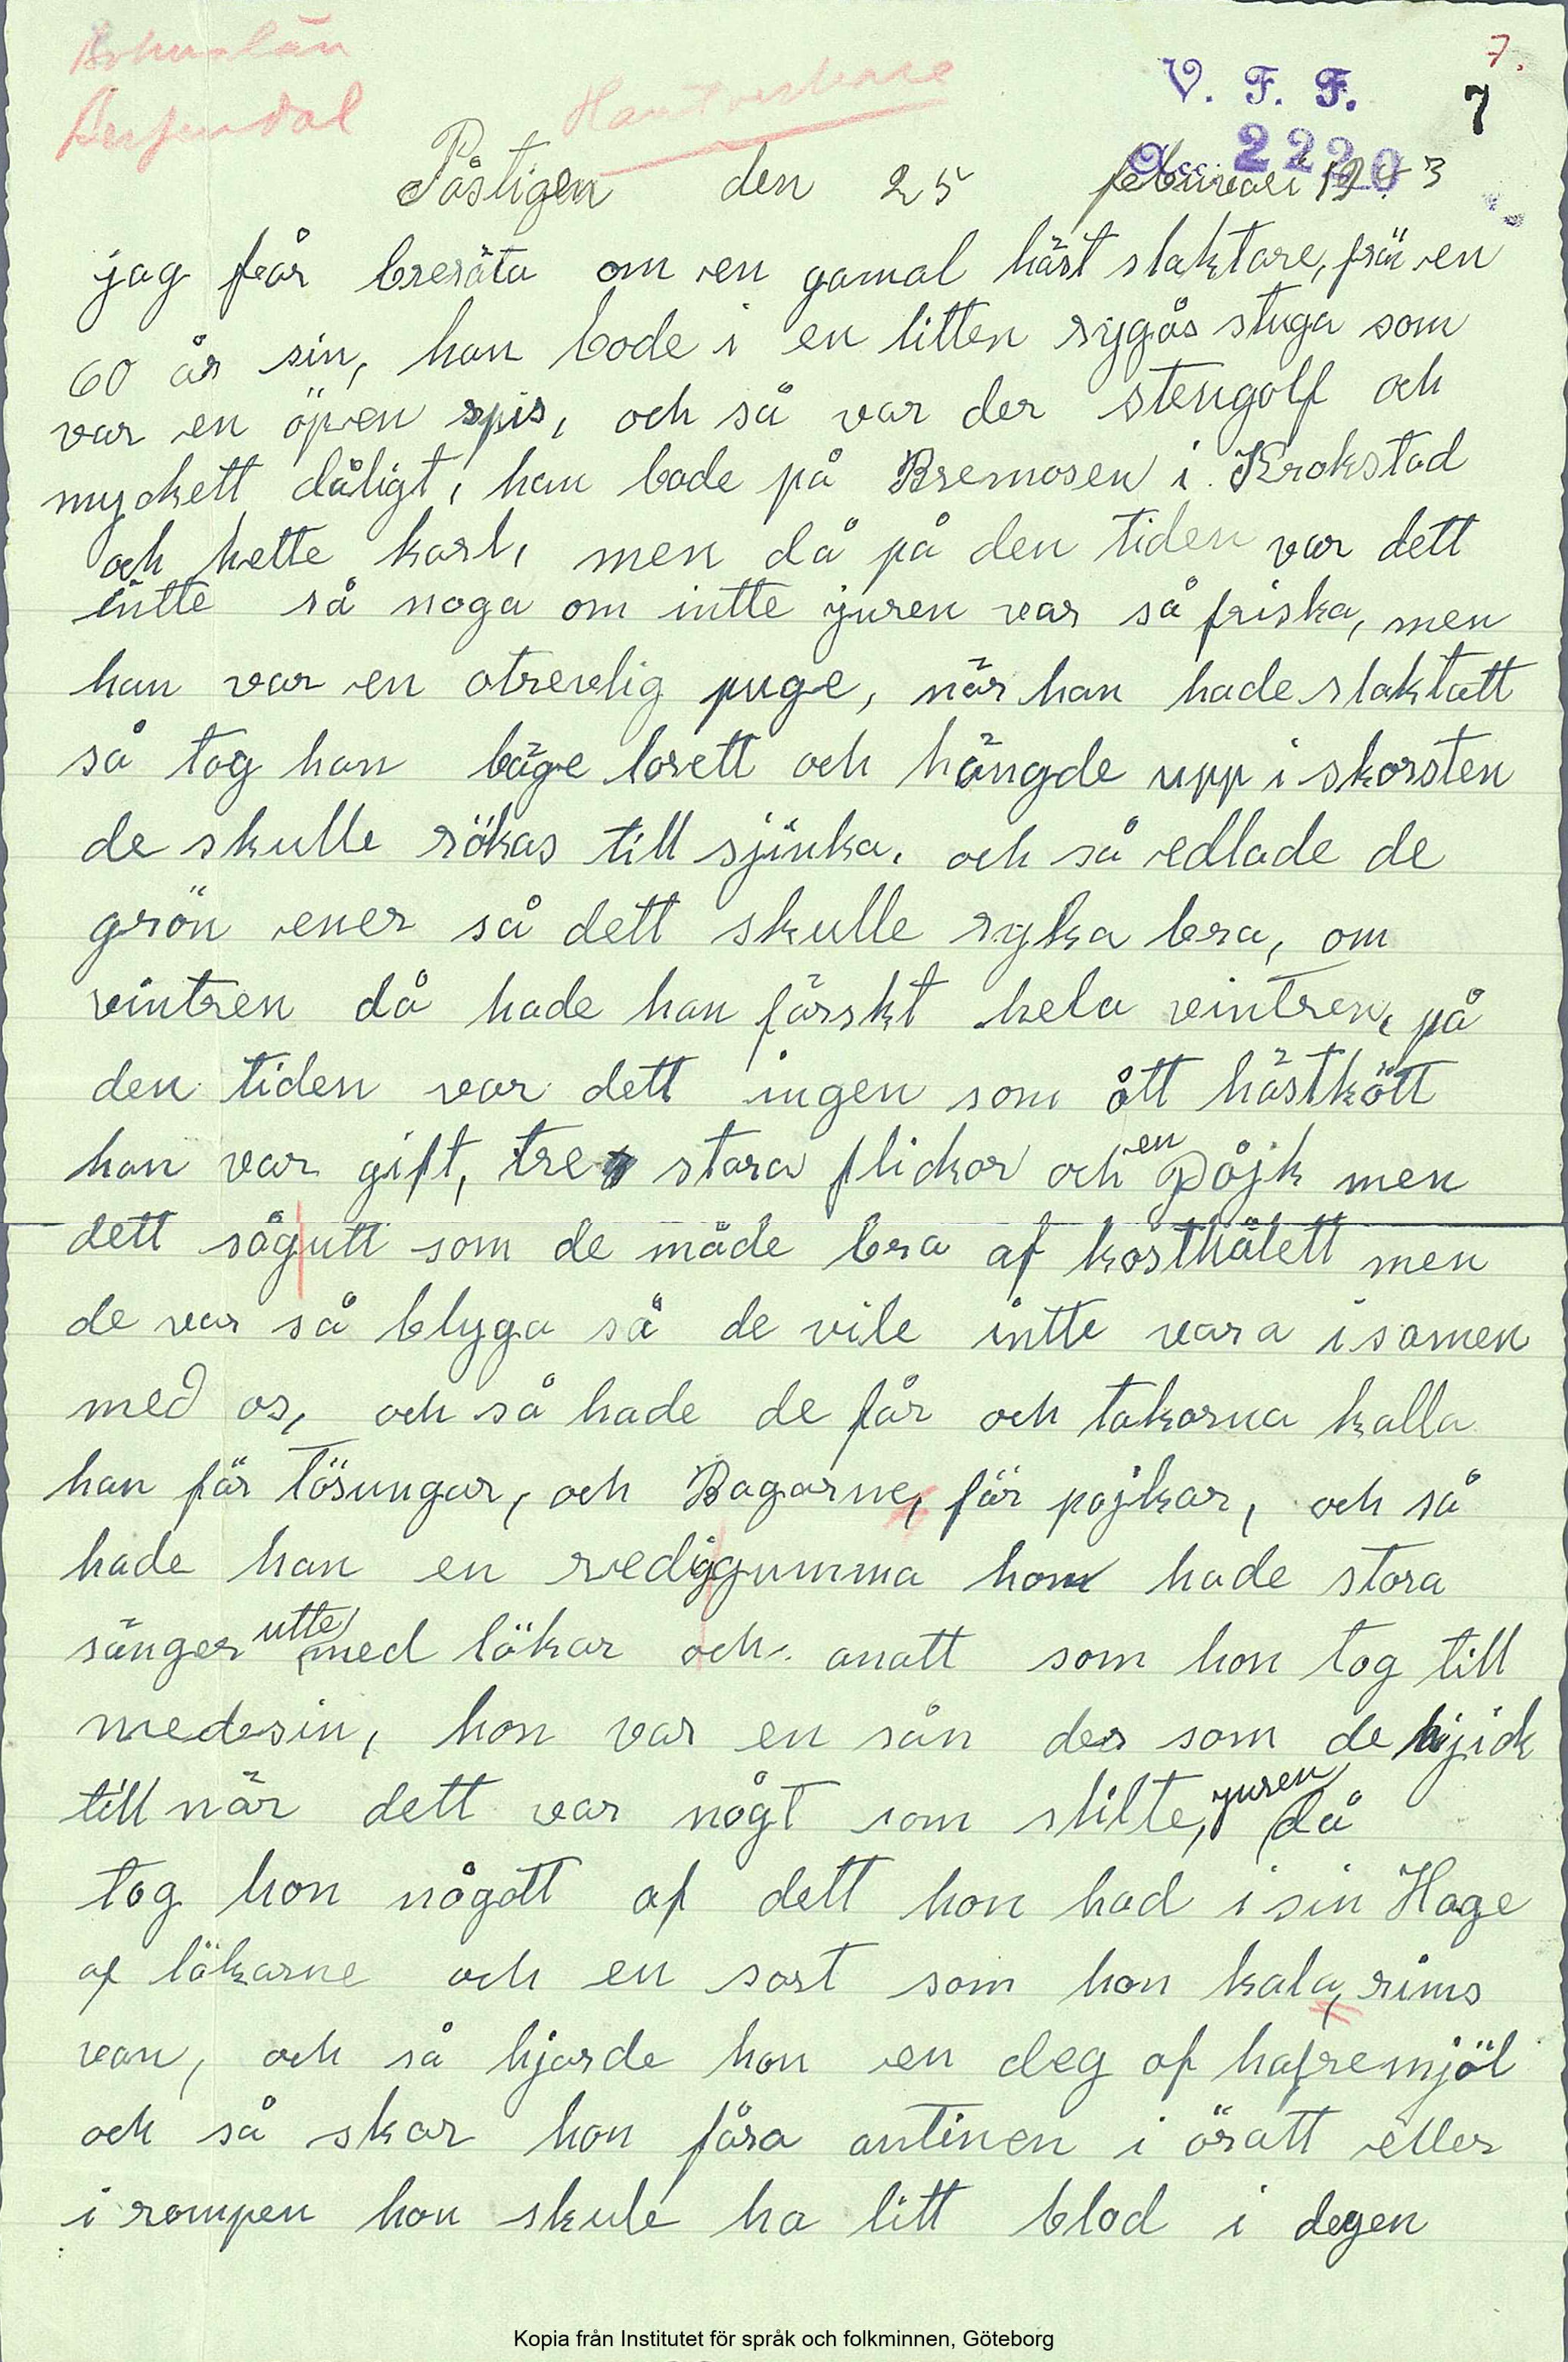 Bohuslän
Hantverkare
V. F. F.
7.
7
Acc. 2220
Påstigen den 25 februari 1923
jag får breräta om en gamal häst slaktare, frär en
60 år sin, han bode i en litten rygås stuga som
var en öpen spis, och så var der stengolf och
myckett dåligt, han bode på Bremosen i Krokstad
och hette karl, men då på den tiden var dett
intte så noga om intte juren var så friska, men
han var en otrevlig puge, när han hade slaktatt
så tog han bäge lorett och hängde upp i skorsten
de skulle rökas till sjinka, och så edlade de
grön ener så dett skulle ryka bra, om
vintren då hade han färskt hela vintren, på
den tiden var dett ingen som ått hästkött
han var gift, tre stora flickor och en påjk men
dett sågutt som de måde bra af kosthålett men
de var så blyga så de vile intte vara isamen
med os, och så hade de får och takorna kalla
han för tösungar, och Bagarne, för pojkar, och så
hade han en rediggumma hon hade stora
sänger utte med lökar och anatt som hon tog till
medesin, hon var en sån der som de hjick
till när dett var någt som stilte, juren då
tog hon någott af dett hon had i sin Hage
af lökarne och en sort som hon kala, rims
van, och så hjorde hon en deg af hafremjöl
och så skar hon fåra antinen i öratt eller
i rompen hon skule ha litt blod i degen
Kopia från Institutet för språk och folkminnen, Göteborg